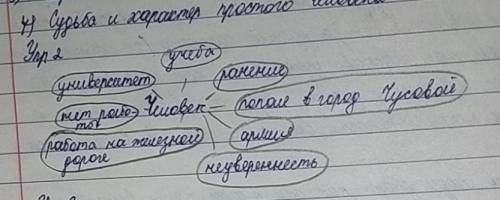 4) Судьба и характер простого человека
Упр 2
учеба
университет
ранение
нет рабо-
ты
Человек
попал в город Чусовой
работа на железной
дороге
армия
неуверенность